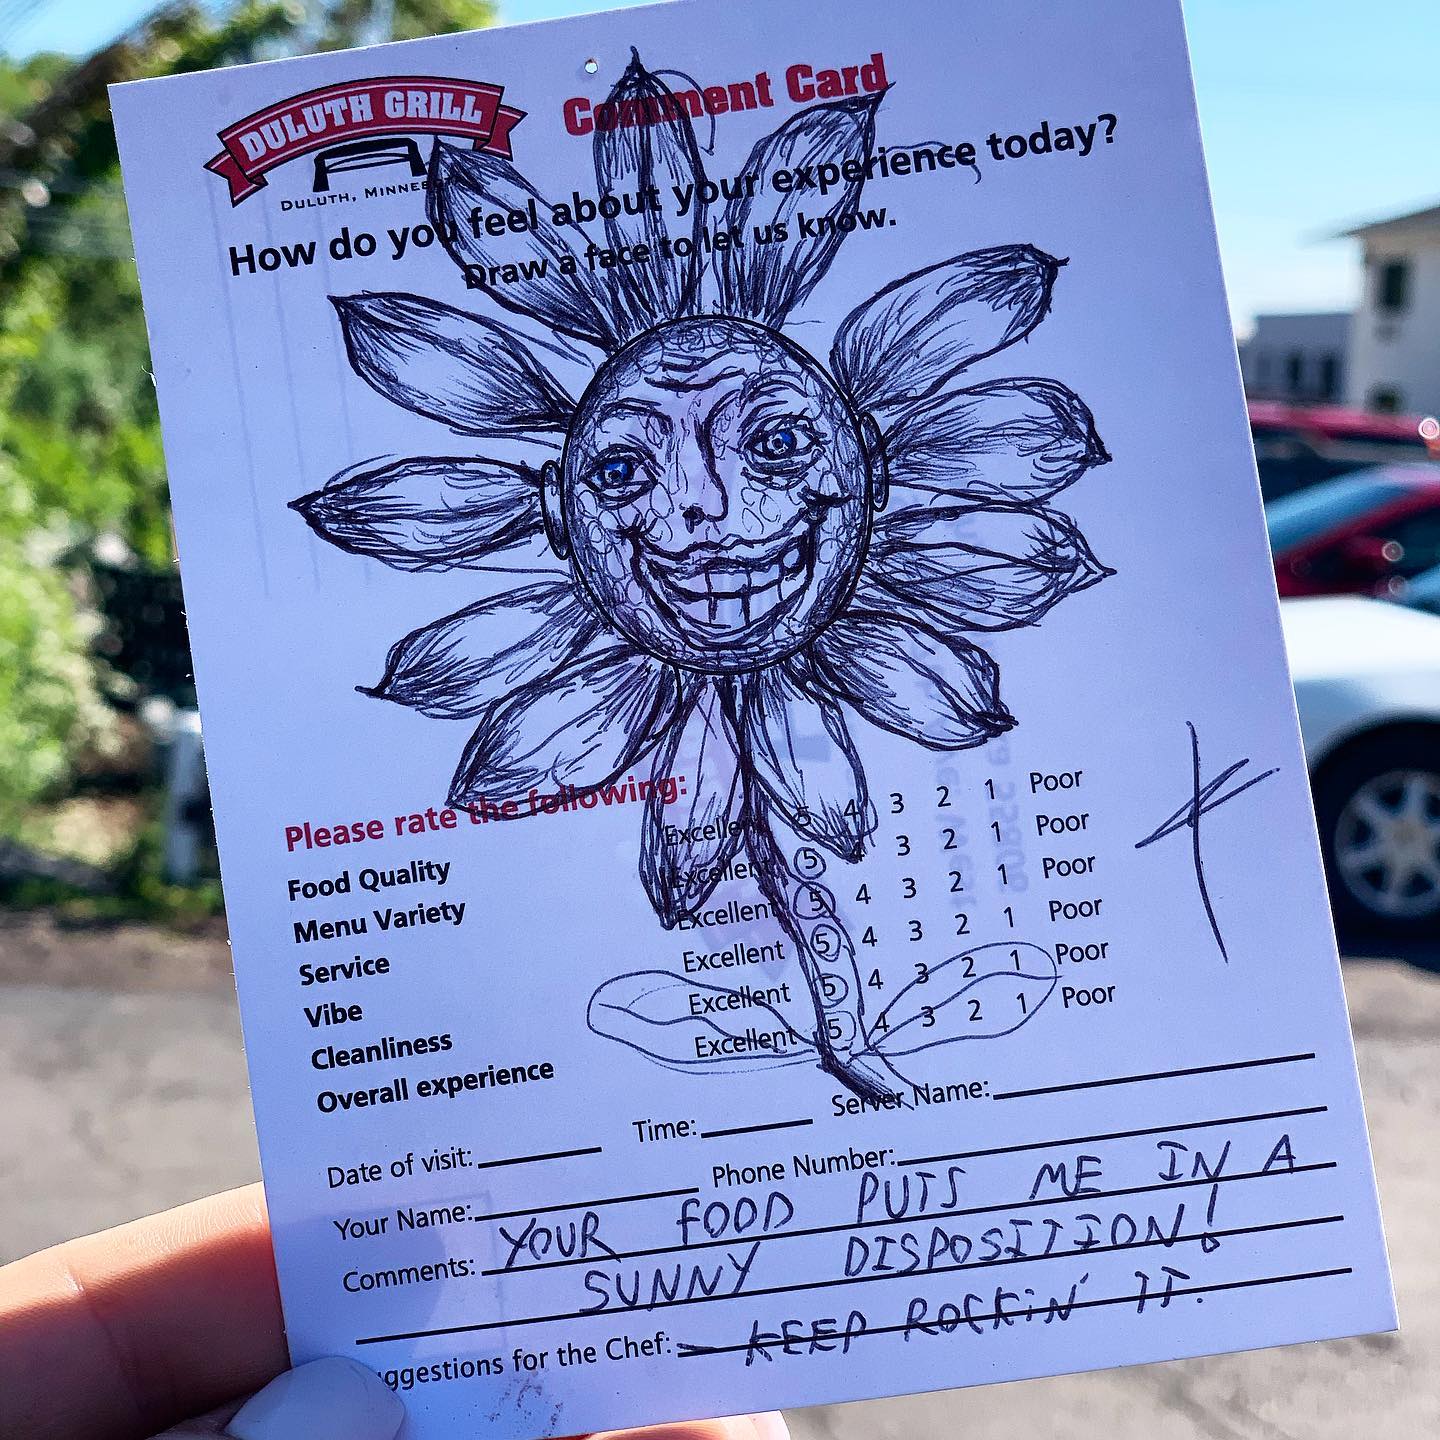 DULUTH GRILL
DULUTH, MINNE
Comment Card
How do you feel about your experience today?
Draw a face to let us know.
Please rate the following:
Food Quality Excellent 5 4 3 2 1 Poor
Menu Variety Excellent 5 4 3 2 1 Poor
Service Excellent 5 4 3 2 1 Poor
Vibe Excellent 5 4 3 2 1 Poor
Cleanliness Excellent 5 4 3 2 1 Poor
Overall experience Excellent 5 4 3 2 1 Poor
Date of visit: Time: Server Name:
Your Name: Phone Number:
Comments: YOUR FOOD PUTS ME IN A
SUNNY DISPOSITION!
ggestions for the Chef: - KEEP ROCKIN' IT.